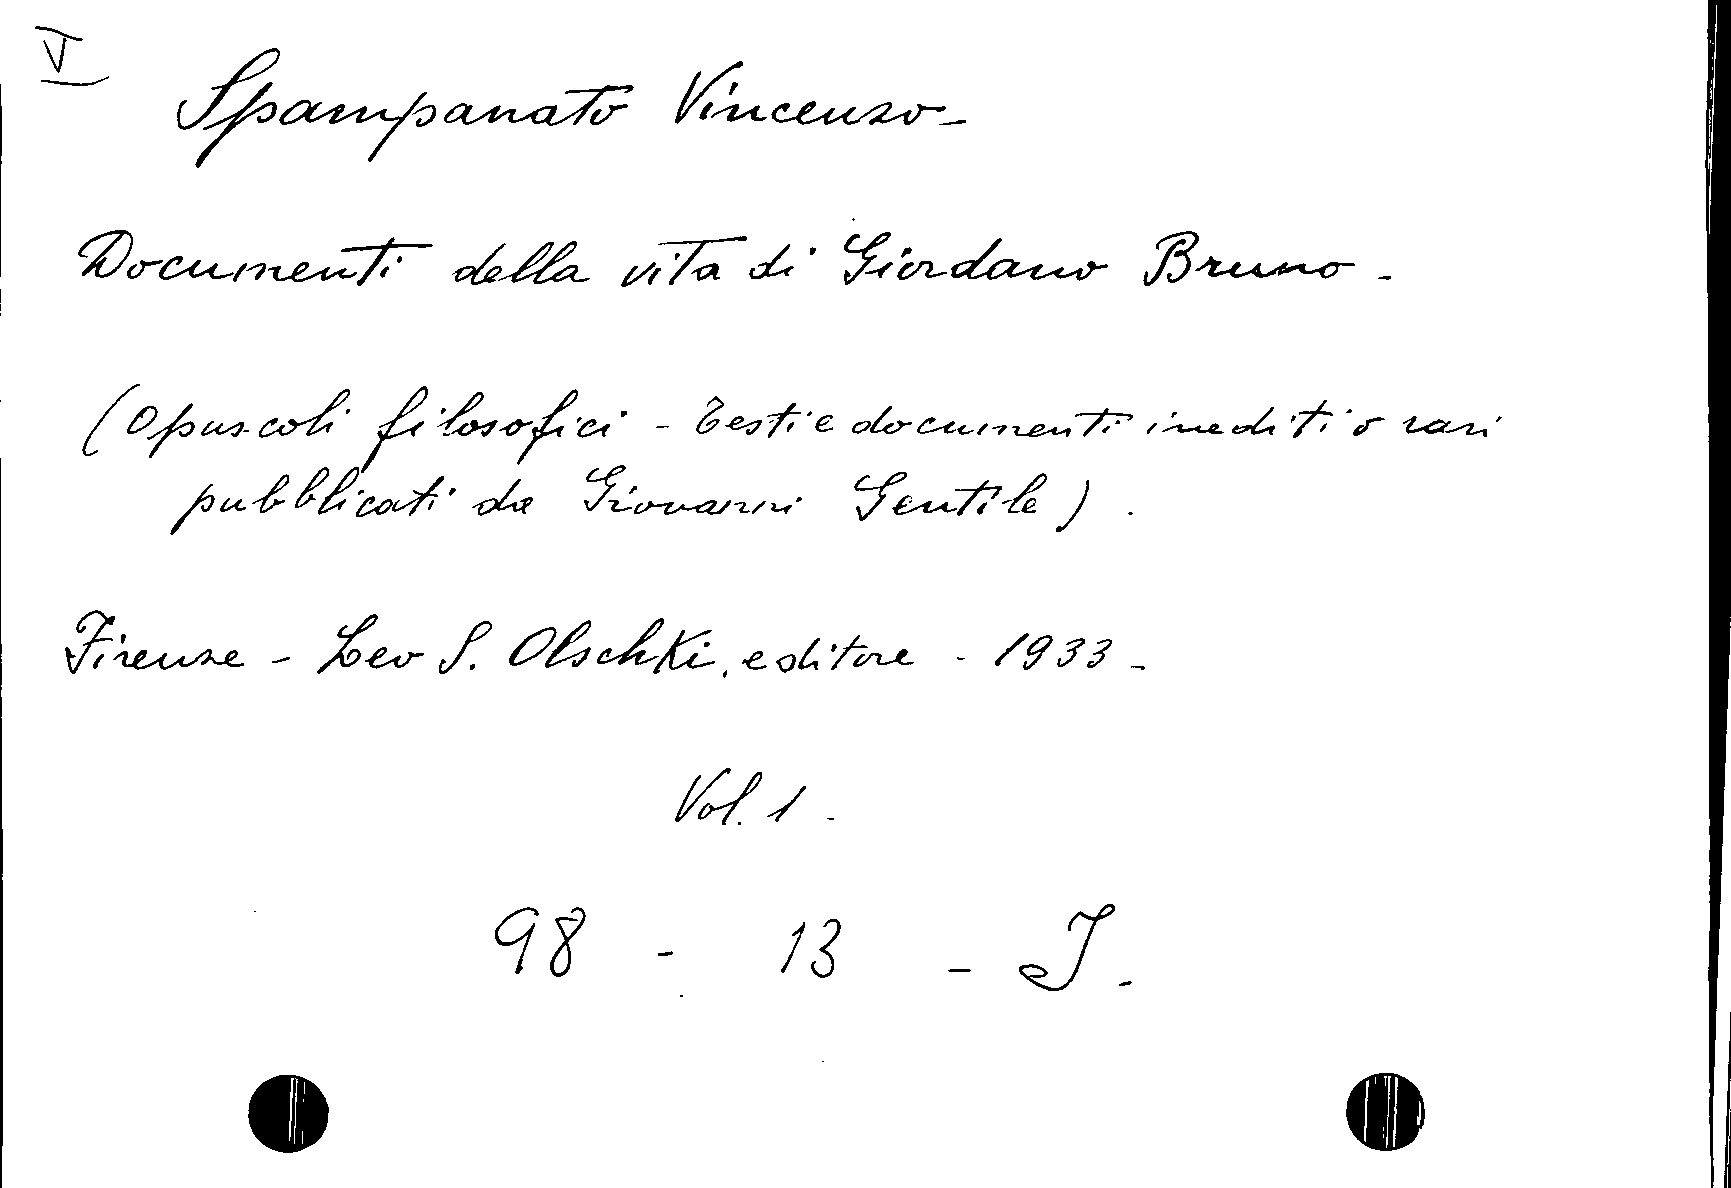 V
Spampanato Vincenzo -
Documenti della vita di Giordano Bruno -
(Opuscoli filosofici - Testi e documenti inediti o rari
pubblicati da Giovanni Gentile) .
Firenze - Leo S. Olschki, editore - 1933 -
Vol. 1 -
98 - 13 - I. -